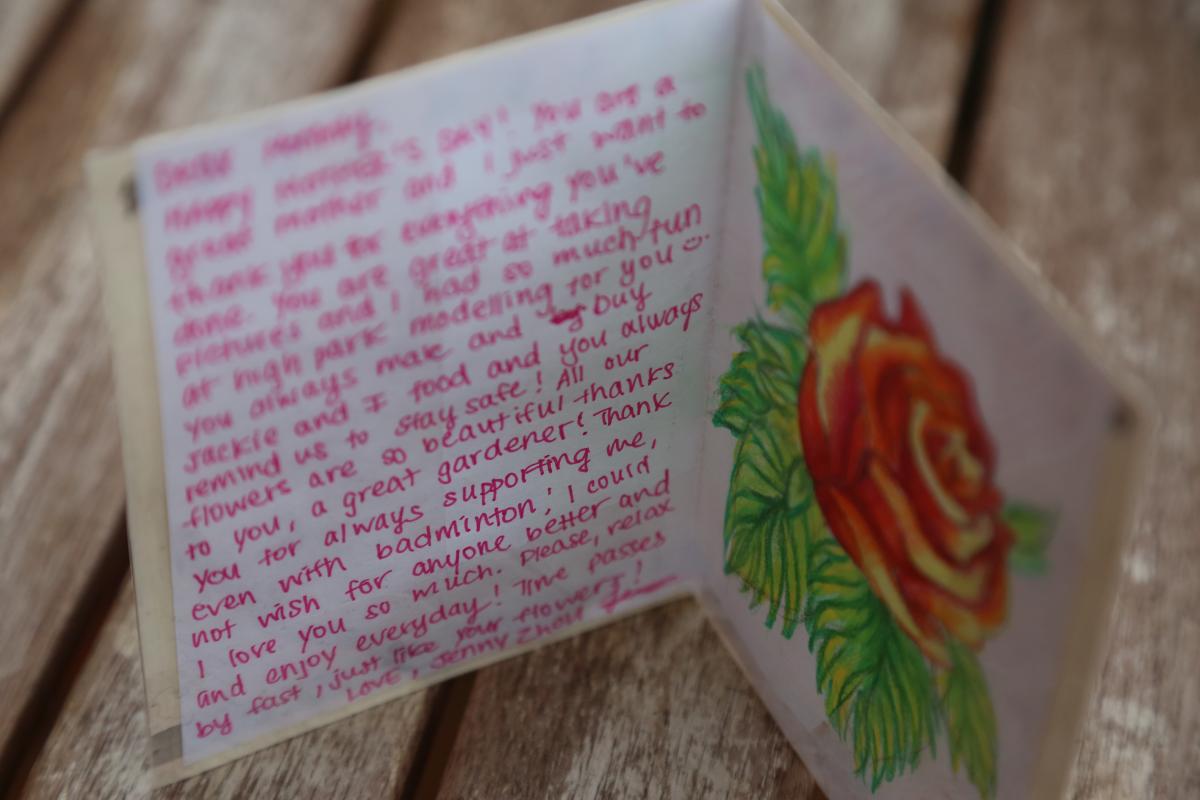 Dear Mommy,
Happy Mother's DAY! You are a
great mother and I just want to
thank you for everything you've
done. You are great at taking
pictures and I had so much fun
at high park modelling for you :).
you always make and buy
Jackie and I food and you always
remind us to stay safe! All our
flowers are so beautiful thanks
to you, a great gardener! Thank
you for always supporting me,
even with badminton! I could
not wish for anyone better and
I love you so much. Please, relax
and enjoy everyday! Time passes
by fast, just like your flowers!
LOVE, Jenny Zhou